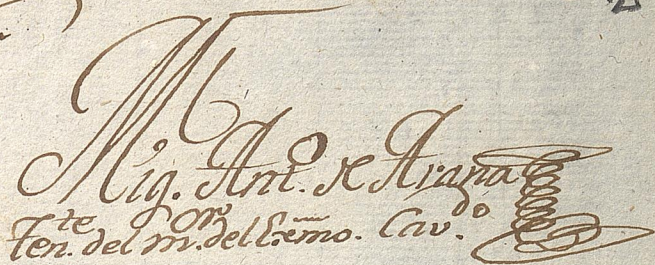 Mig. Ant.º de Arana
Ten.te del m.or del Exmo. Cav.do